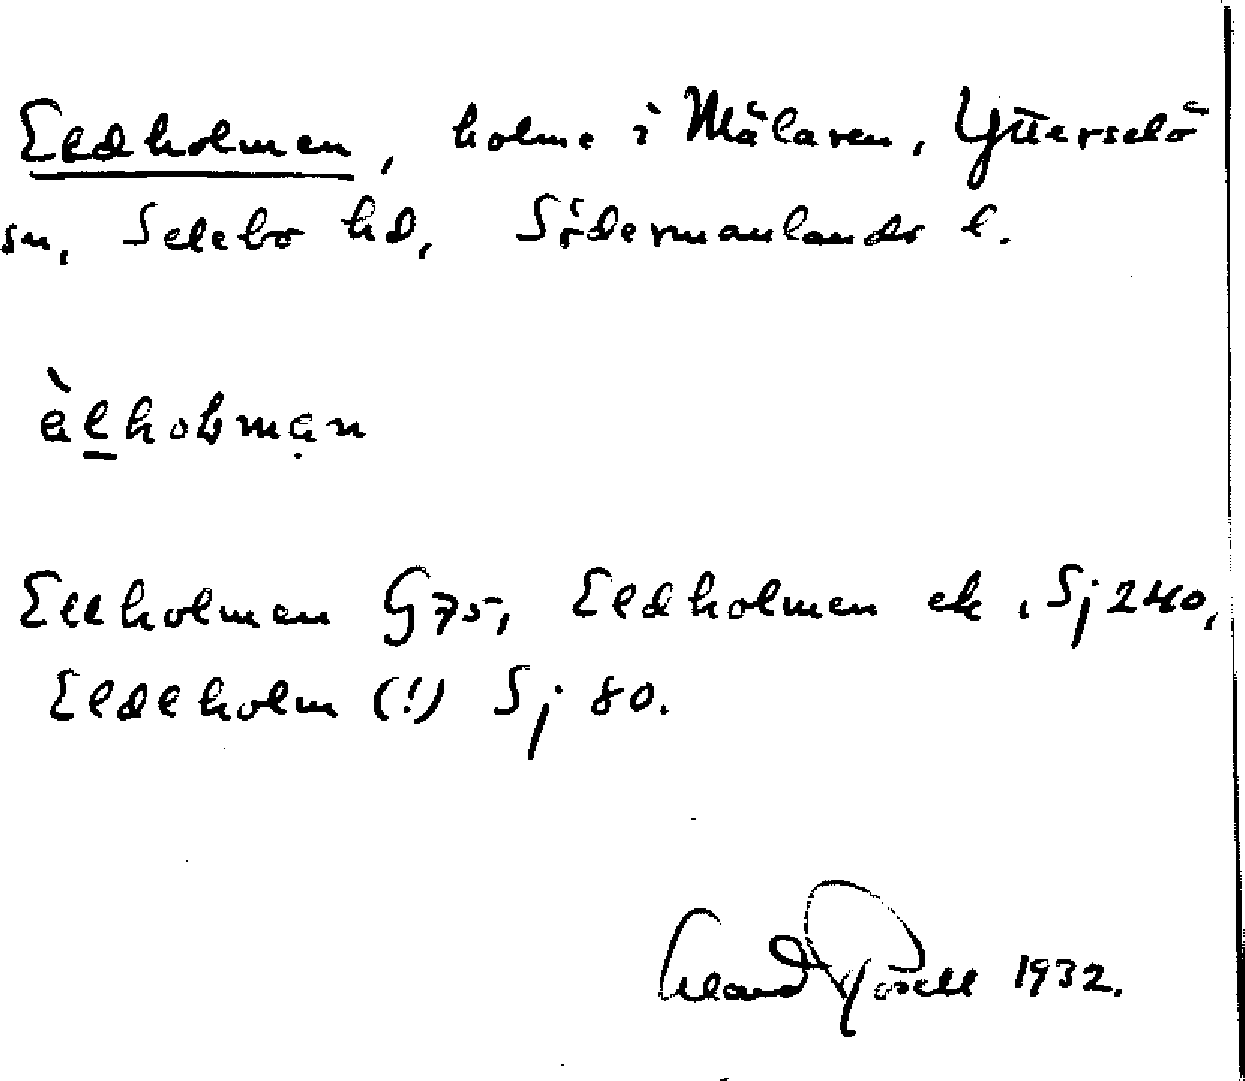 Eldholmen, holme i Mälaren, Ytterselö
sn, Selebo hd, Södermanlands l.
èlholmạn
Ellholmen G 75, Eldholmen ek, Sj 240,
Eldeholm (!) Sj 80.
1932.